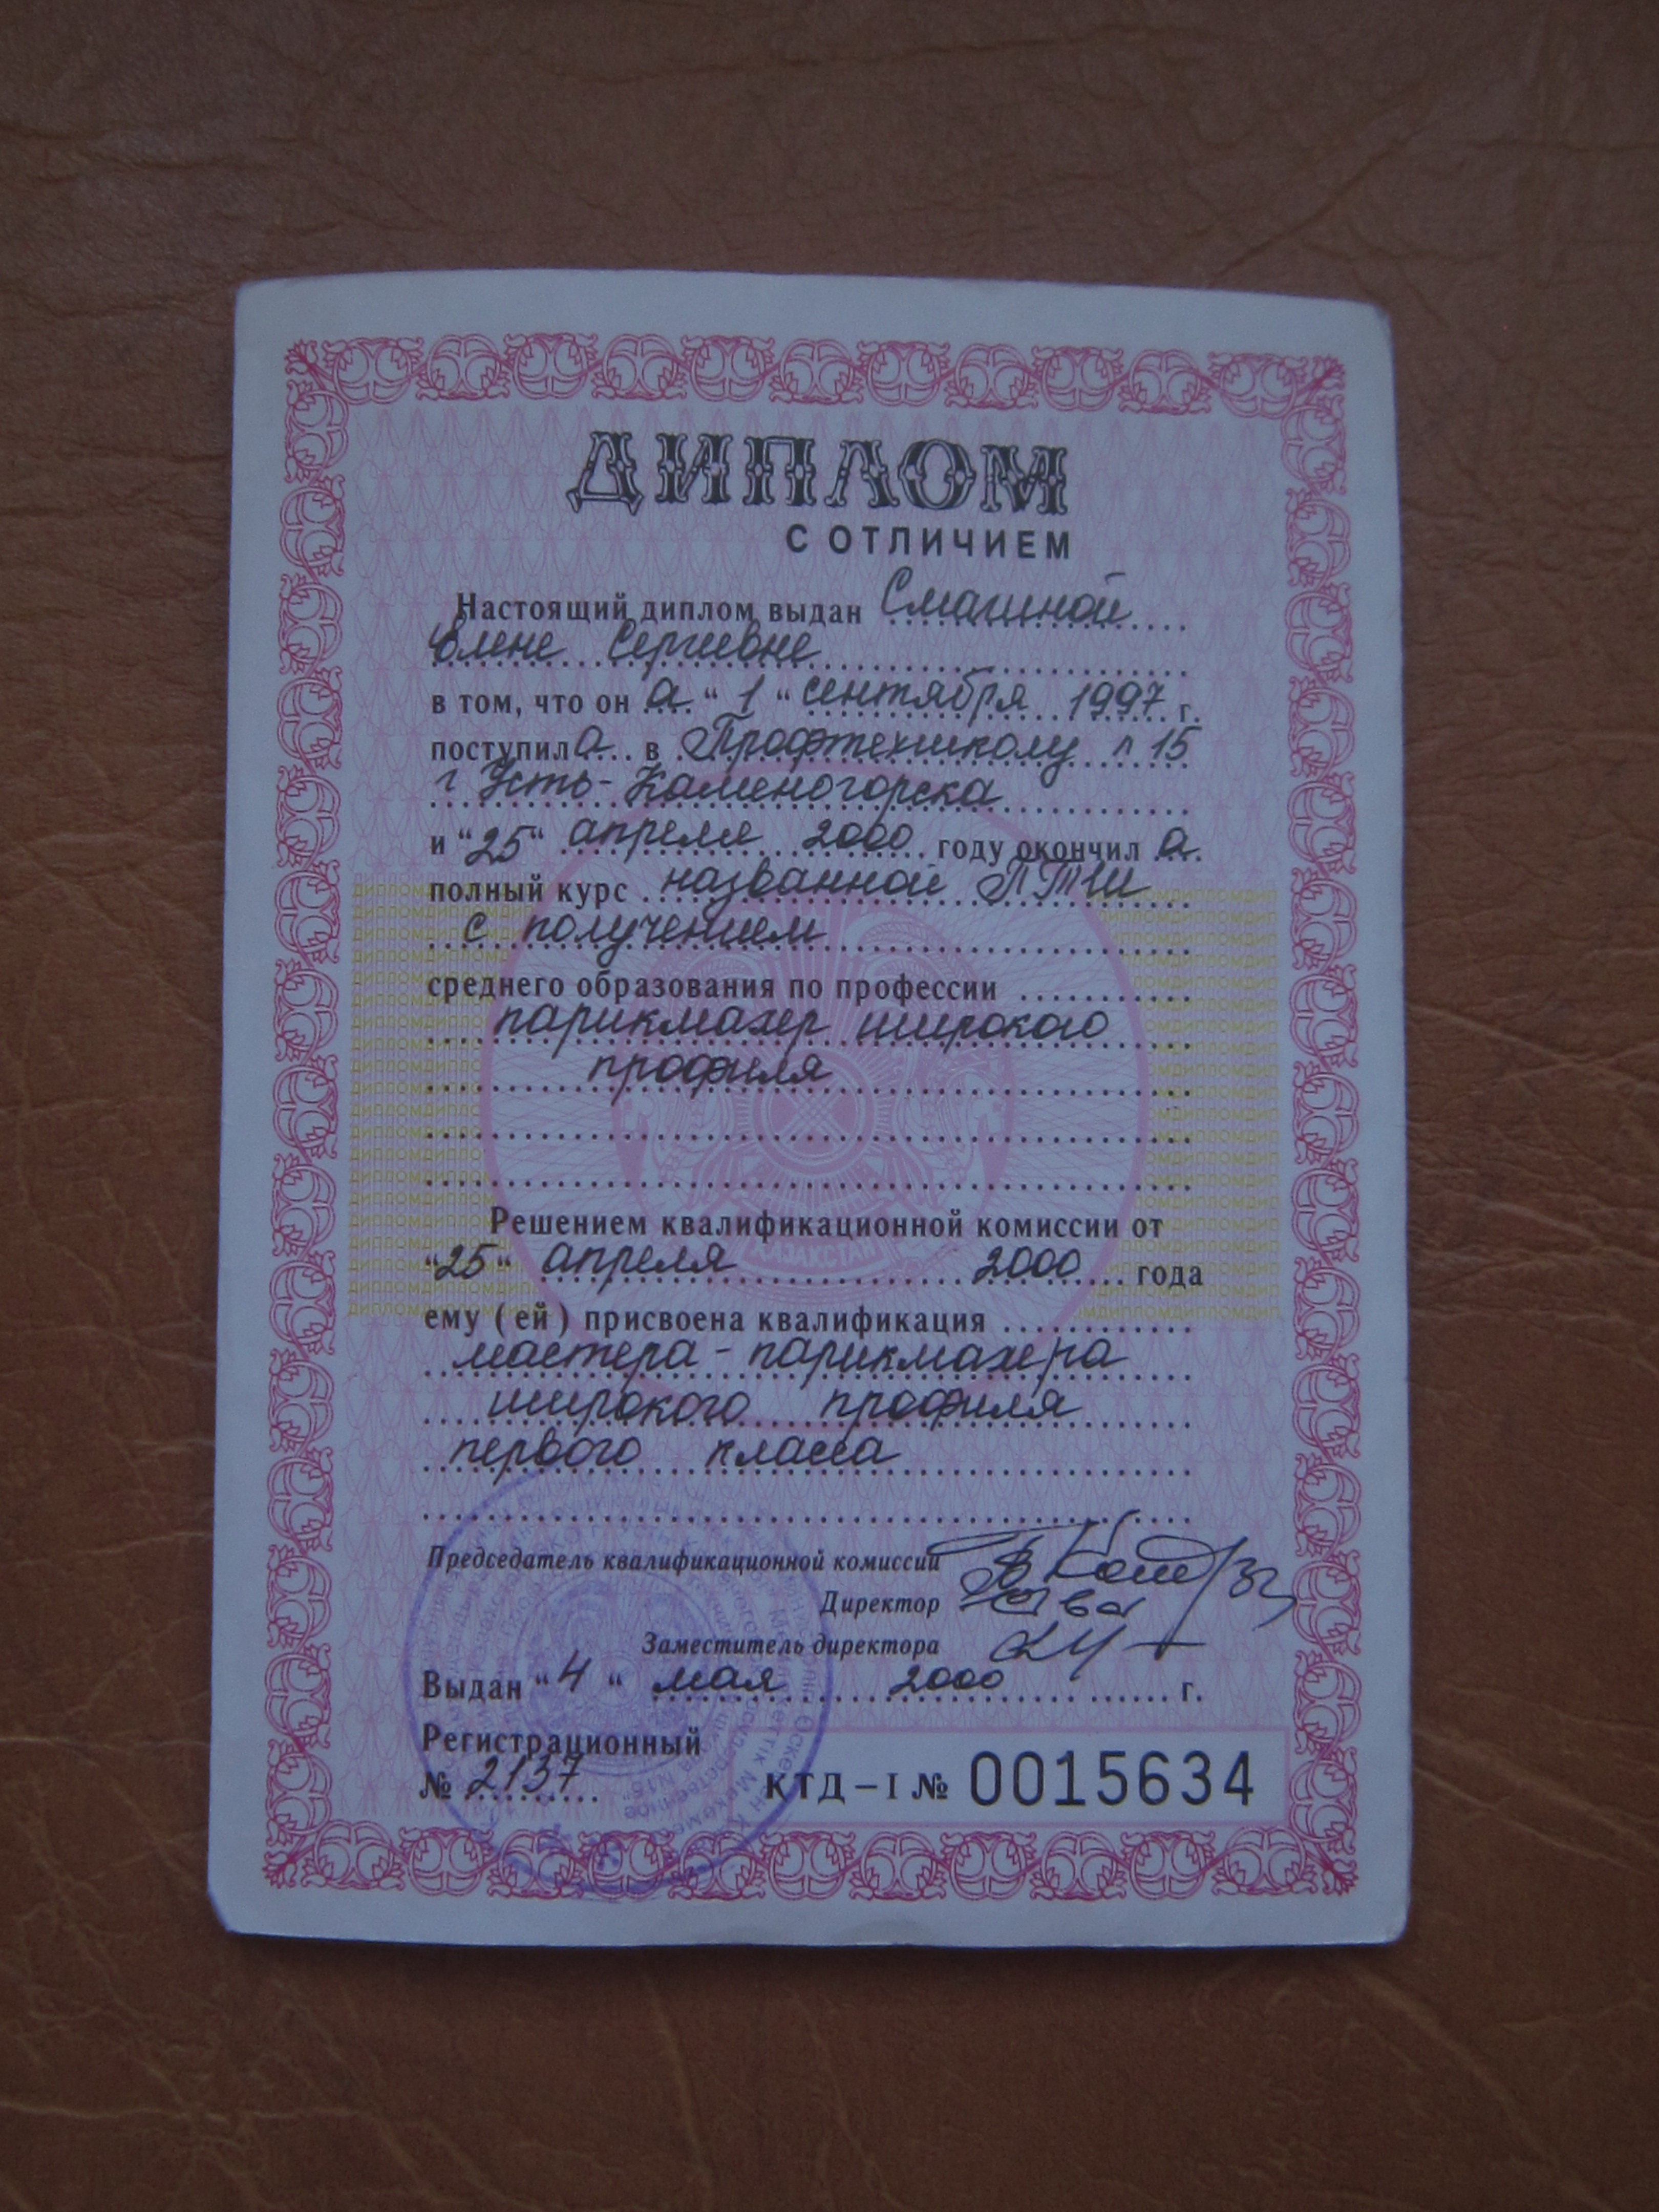 ДИПЛОМ
С ОТЛИЧИЕМ
Настоящий диплом выдан Смашной
Елене Сергеевне
в том, что он а "1" сентября 1997 г.
поступила в Профтехшколу n 15
г Усть-Каменогорска
и "25" апреля 2000 году окончил а
полный курс названной ПТШ
с получением
среднего образования по профессии
парикмахер широкого
профиля
Решением квалификационной комиссии от
"25" апреля 2000 года
ему (ей) присвоена квалификация
мастера-парикмахера
широкого профиля
первого класса
Председатель квалификационной комиссии
Директор
Заместитель директора
Выдан "4" мая 2000 г.
Регистрационный
№ 2137
КТД-I № 0015634
ҚАЗАҚСТАН